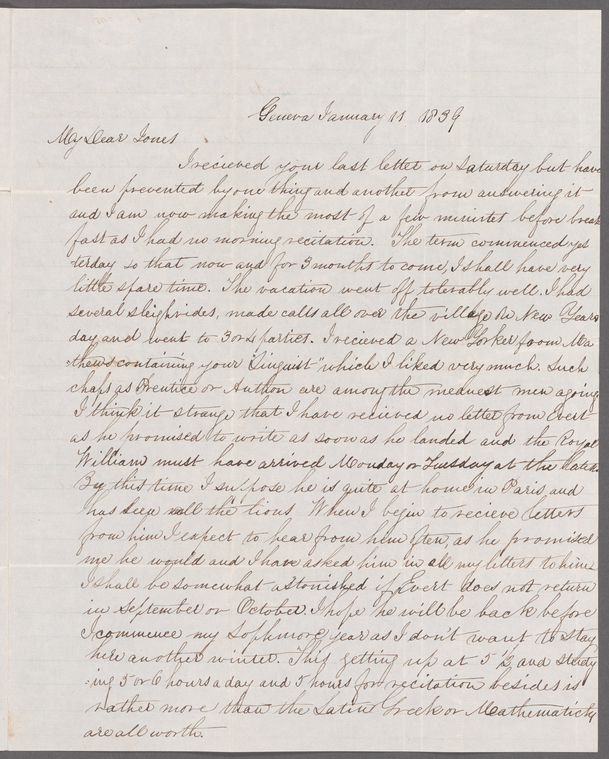 Geneva January 11 1839
My Dear Jones
I recieved your last letter on Saturday but have
been prevented by one thing and another from answering it
and I am now making the most of a few minutes before break
fast as I had no morning recitation. The term commenced yes
terday so that now and for 3 months to come, I shall have very
little spare time. The vacation went off tolerably well. I had
several sleighrides, made calls all over the village on New Years
day and went to 3 or 4 parties. I recieved a New Yorker from Ma
thews containing your "Linguist" which I liked very much. Such
chaps as Prentice or Author are among the meanest men agoing
I think it strange that I have recieved no letter from Evert
as he promised to write as soon as he landed and the Royal
William must have arrived Monday or Tuesday at the latest.
By this time I suppose he is quite at home in Paris, and
has seen all the lions. When I begin to recieve letters
from him I expect to hear from him often, as he promised
me he would and I have asked him in all my letters to him.
I shall be somewhat astonished if Evert does not return
in September or October. I hope he will be back before
I commence my Sophmore year as I don't want to stay
here another winter. This getting up at 5 1/2 and study
ing 5 or 6 hours a day and 5 hours for recitation besides is
rather more than the Latin Greek or Mathematicks
are all worth.